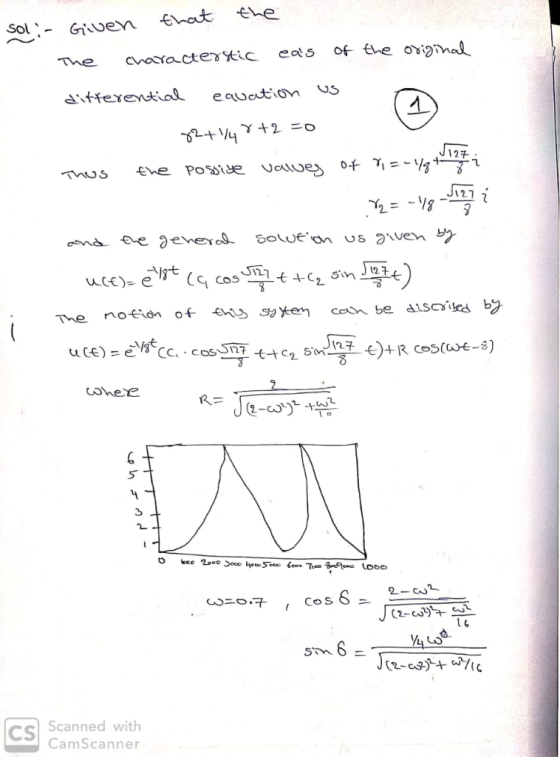 Sol:- Given that the
The characterstic eas of the original
differential equation us
①
r2+1/4 r+2 =0
Thus the possive values of r₁ = -1/8 + √127/8 i
r₂ = -1/8 - √127/8 i
and the general solution us given by
u(t) = e^-1/8t (C₁ cos √127/8 t + C₂ sin √127/8 t)
The motion of this system can be discribed by
u(t) = e^-1/8t (C₁ . cos √127/8 t + C₂ sin √127/8 t) + R cos(ωt-δ)
where R = 2/√((2-ω²)² + ω²/10)
6
5
4
3
2
1
0 1000 2000 3000 4000 5000 6000 7000 8000 9000 1000
ω=0.7 , cos δ = (2-ω²)/√((2-ω²)² + ω²/16)
sin δ = (1/4 ω)/√((2-ω²)² + ω²/16)
CS Scanned with
CamScanner